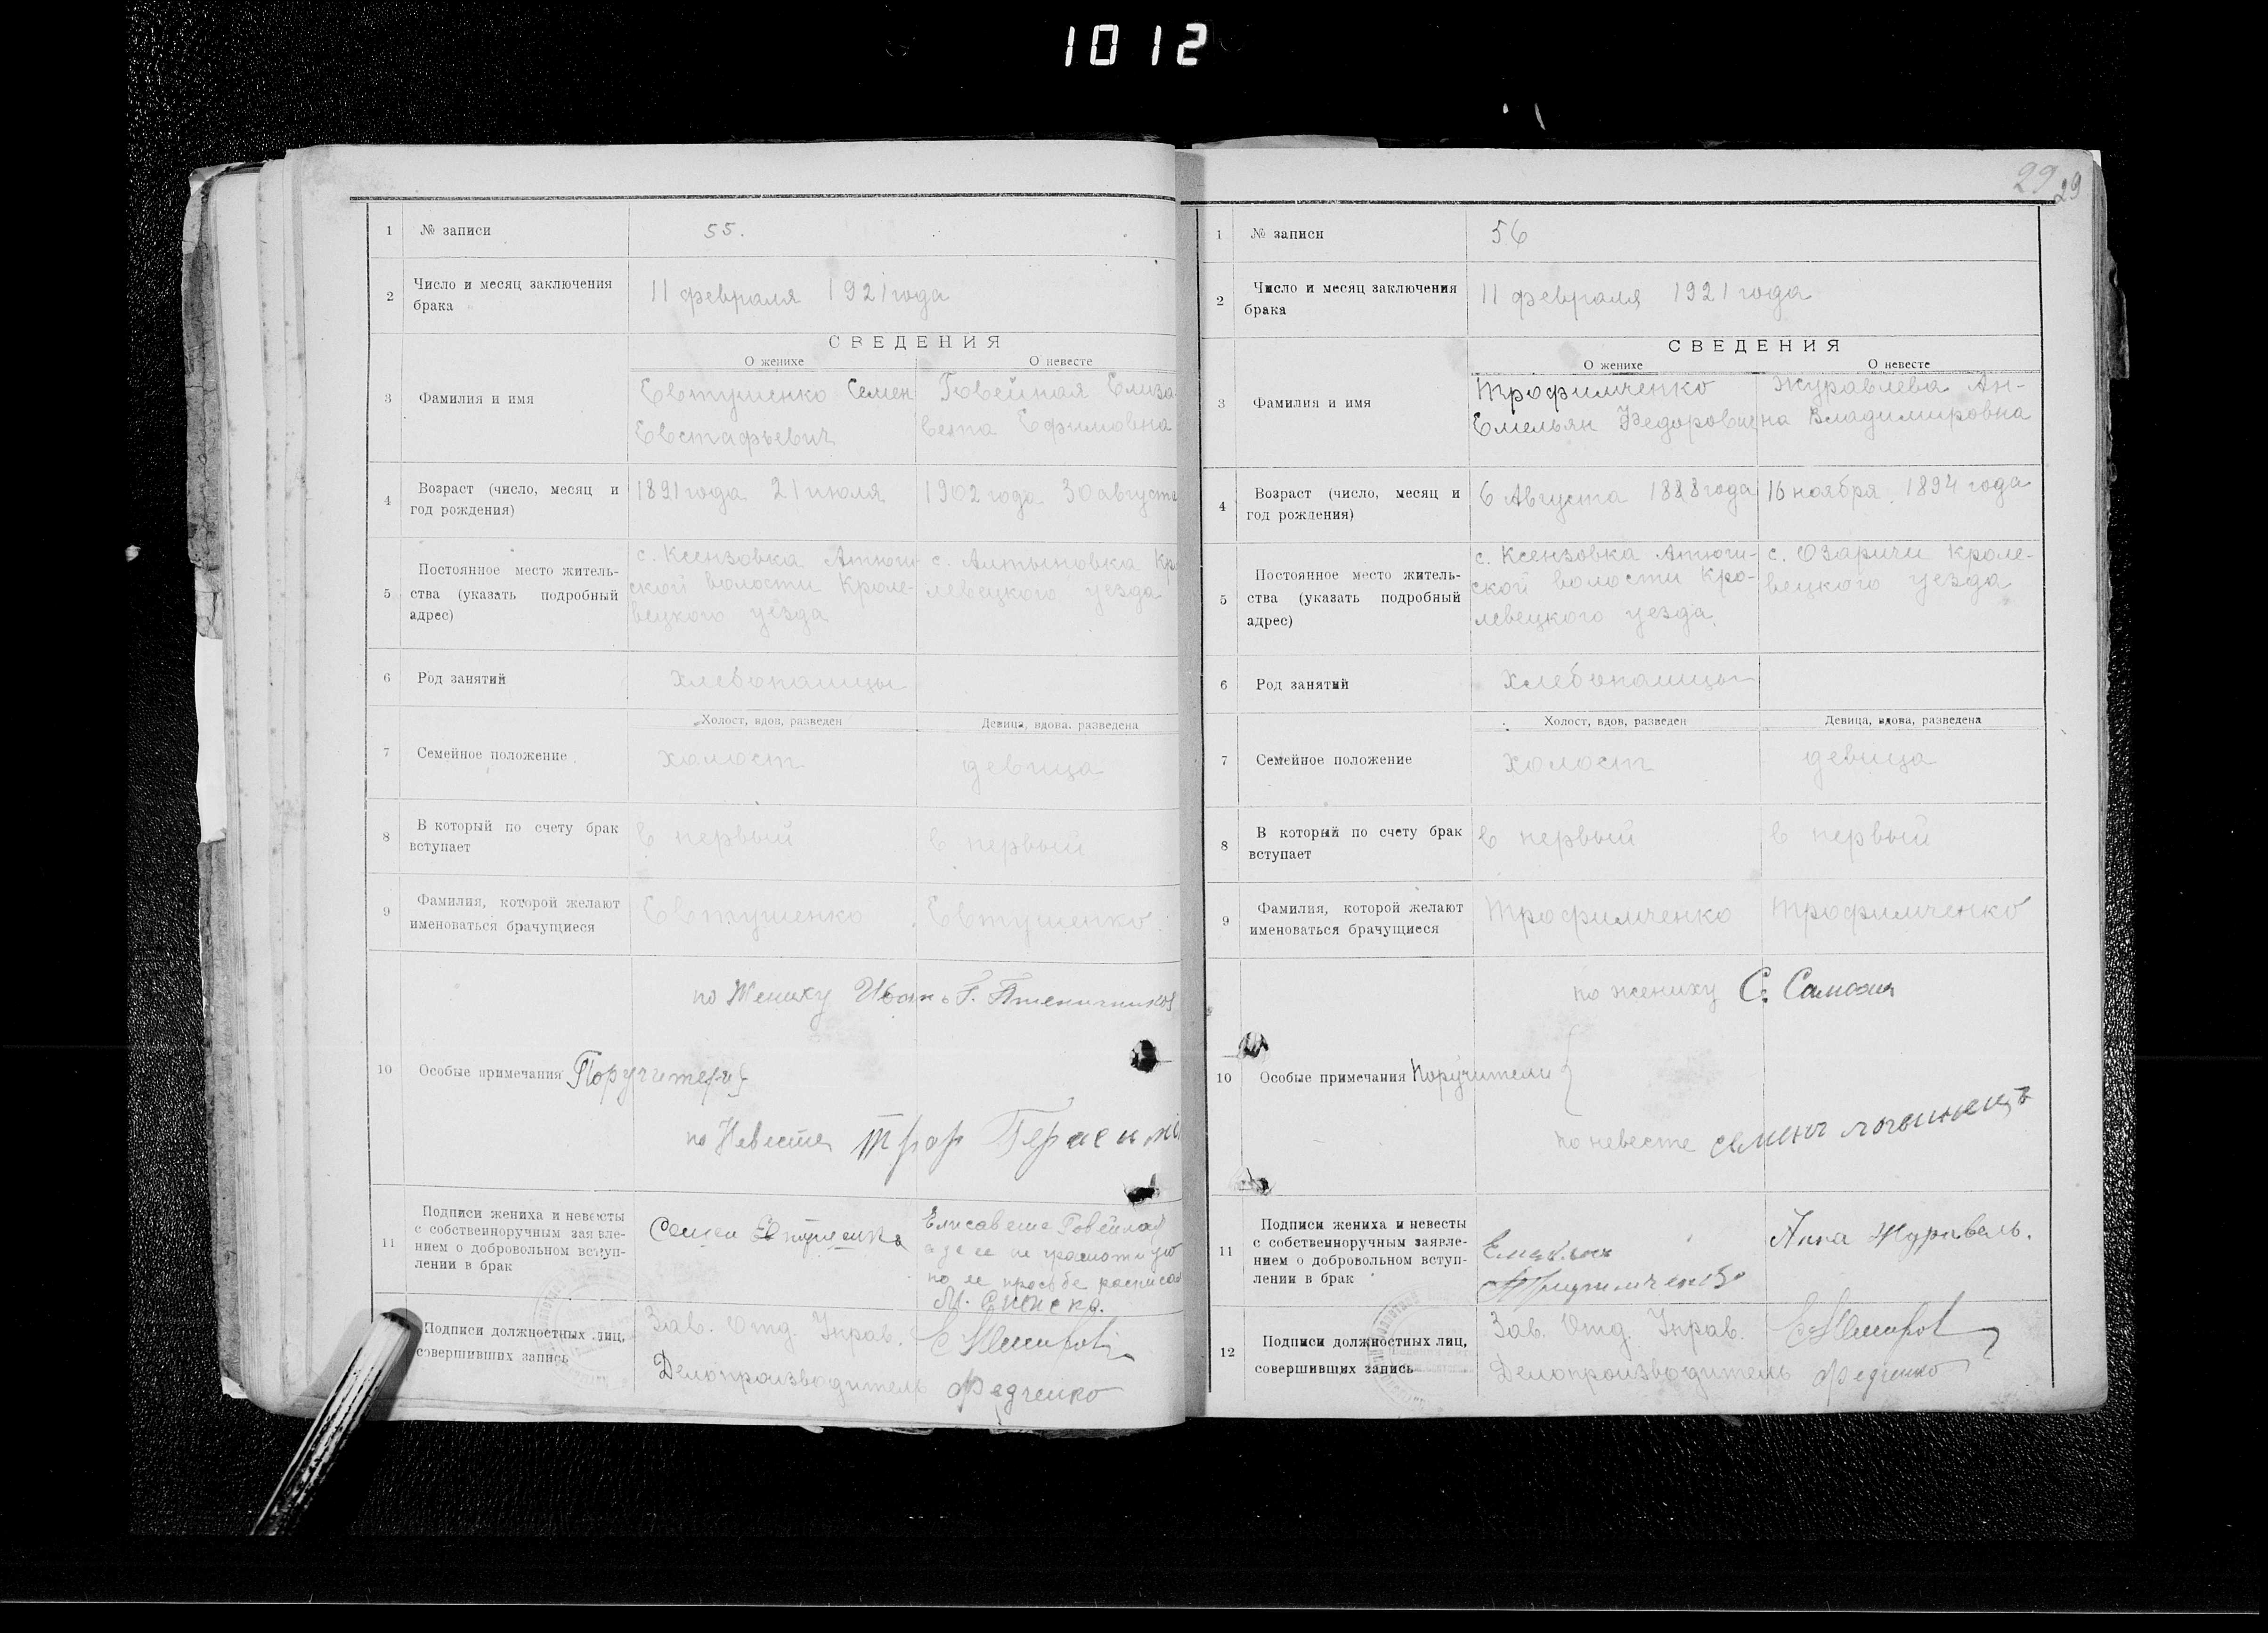 1012
1 № записи 55.
2 Число и месяц заключения брака
11 февраля 1921 года
СВЕДЕНИЯ
О женихе О невесте
3 Фамилия и имя
Евтушенко Семен
Евстафьевич
Говейная Елиза-
вета Ефимовна
4 Возраст (число, месяц и
год рождения)
1891 года 21 июля
1902 года 30 августа
5 Постоянное место житель-
ства (указать подробный
адрес)
с. Ксензовка Атюш-
ской волости Кроле-
вецкого уезда
с. Алтыновка Кро
левецкого уезда
6 Род занятий
хлебопашцы
Холост, вдов, разведен Девица, вдова, разведена
7 Семейное положение
холост девица
8 В который по счету брак
вступает
в первый в первый
9 Фамилия, которой желают
именоваться брачущиеся
Евтушенко Евтушенко
по Жениху Иван Г. Пшеничников
10 Особые примечания Поручители
по Невесте
11 Подписи жениха и невесты
с собственноручным заявле-
нием о добровольном вступ-
лении в брак
Семен Евтушенко
Елисавета Говейная
а за ее не грамотную
по ее просьбе расписал
Подписи должностных лиц,
совершивших запись
Зав. Отд. Управ.
Делопроизводитель Федченко
29 29
1 № записи 56
2 Число и месяц заключения
брака
11 февраля 1921 года
СВЕДЕНИЯ
О женихе О невесте
3 Фамилия и имя
Трофимченко
Емельян Федорович
Журавлева Ан-
на Владимировна
4 Возраст (число, месяц и
год рождения)
6 Августа 1888 года
16 ноября 1894 года
5 Постоянное место житель-
ства (указать подробный
адрес)
с. Ксензовка Атюш-
ской волости Кро-
левецкого уезда.
с. Озаричи Кроле-
вецкого уезда
6 Род занятий
хлебопашцы
Холост, вдов, разведен Девица, вдова, разведена
7 Семейное положение
холост девица
8 В который по счету брак
вступает
в первый в первый
9 Фамилия, которой желают
именоваться брачущиеся
Трофимченко Трофимченко
по жениху С.
10 Особые примечания Поручители
по невесте семенъ
11 Подписи жениха и невесты
с собственноручным заявле-
нием о добровольном вступ-
лении в брак
Емельян
Трофимченко
Анна Журавель.
12 Подписи должностных лиц,
совершивших запись
Зав. Отд. Управ.
Делопроизводитель Федченко